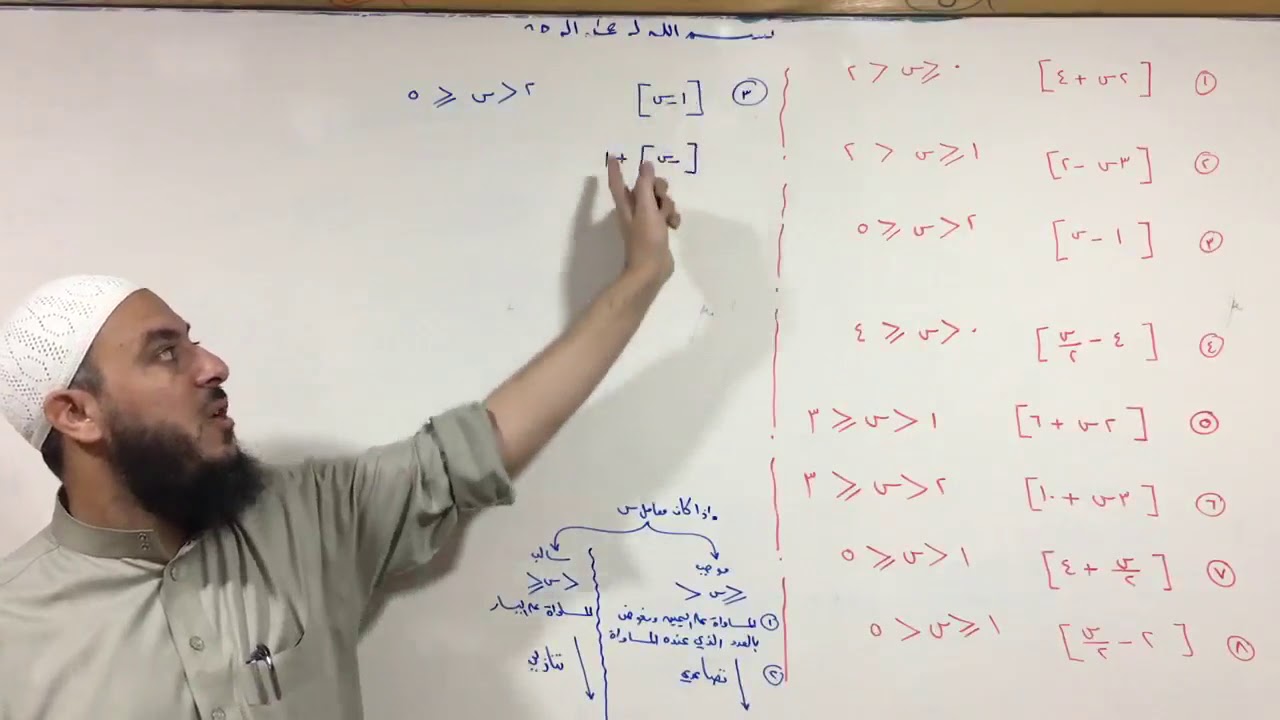 بسم الله
① [٢س + ٤] ٠ ≤ س < ٢
② [٣س - ٢] ١ ≤ س < ٢
③ [١ - س] ٢ < س ≤ ٥
④ [٤ - س/٢] ٠ < س ≤ ٤
⑤ [٢س + ٦] ١ < س ≤ ٣
⑥ [٣س + ١٠] ٢ < س ≤ ٣
⑦ [س/٢ + ٤] ١ < س ≤ ٥
⑧ [٢ - س/٢] ١ ≤ س < ٥
③ [١-س] ٢ < س ≤ ٥
[-س] + ١
اذا كان معامل س
موجب
≤ س <
① المساواة عاليمين ونعوض
بالعدد الذي عنده المساواة
② تصاعدي
سالب
< س ≤
المساواة عاليسار
تنازلي